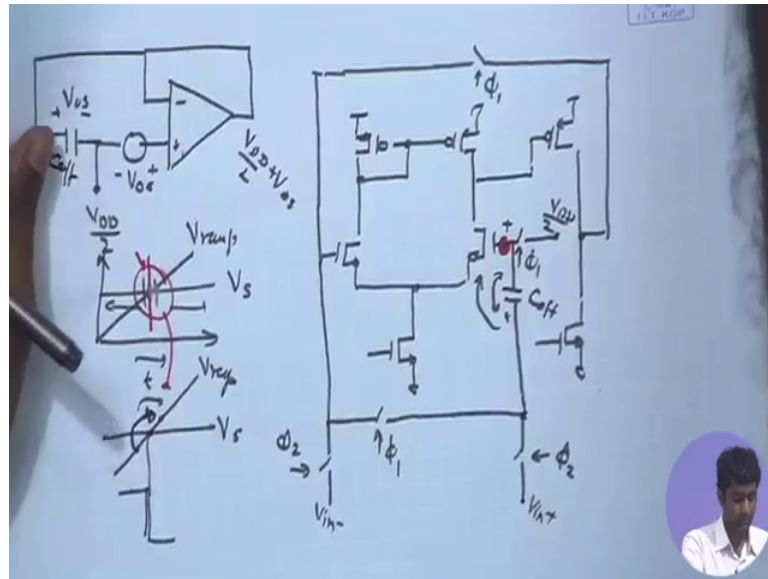 I.I.T. KGP
+ VOS -
Coff
- VOS +
-
+
VDD/2 + VOS
VDD/2
Vramp
VS
t
Vramp
VS
ϕ1
+
VDD/2
ϕ1
Coff
+
ϕ2
ϕ1
ϕ2
Vin-
Vin+